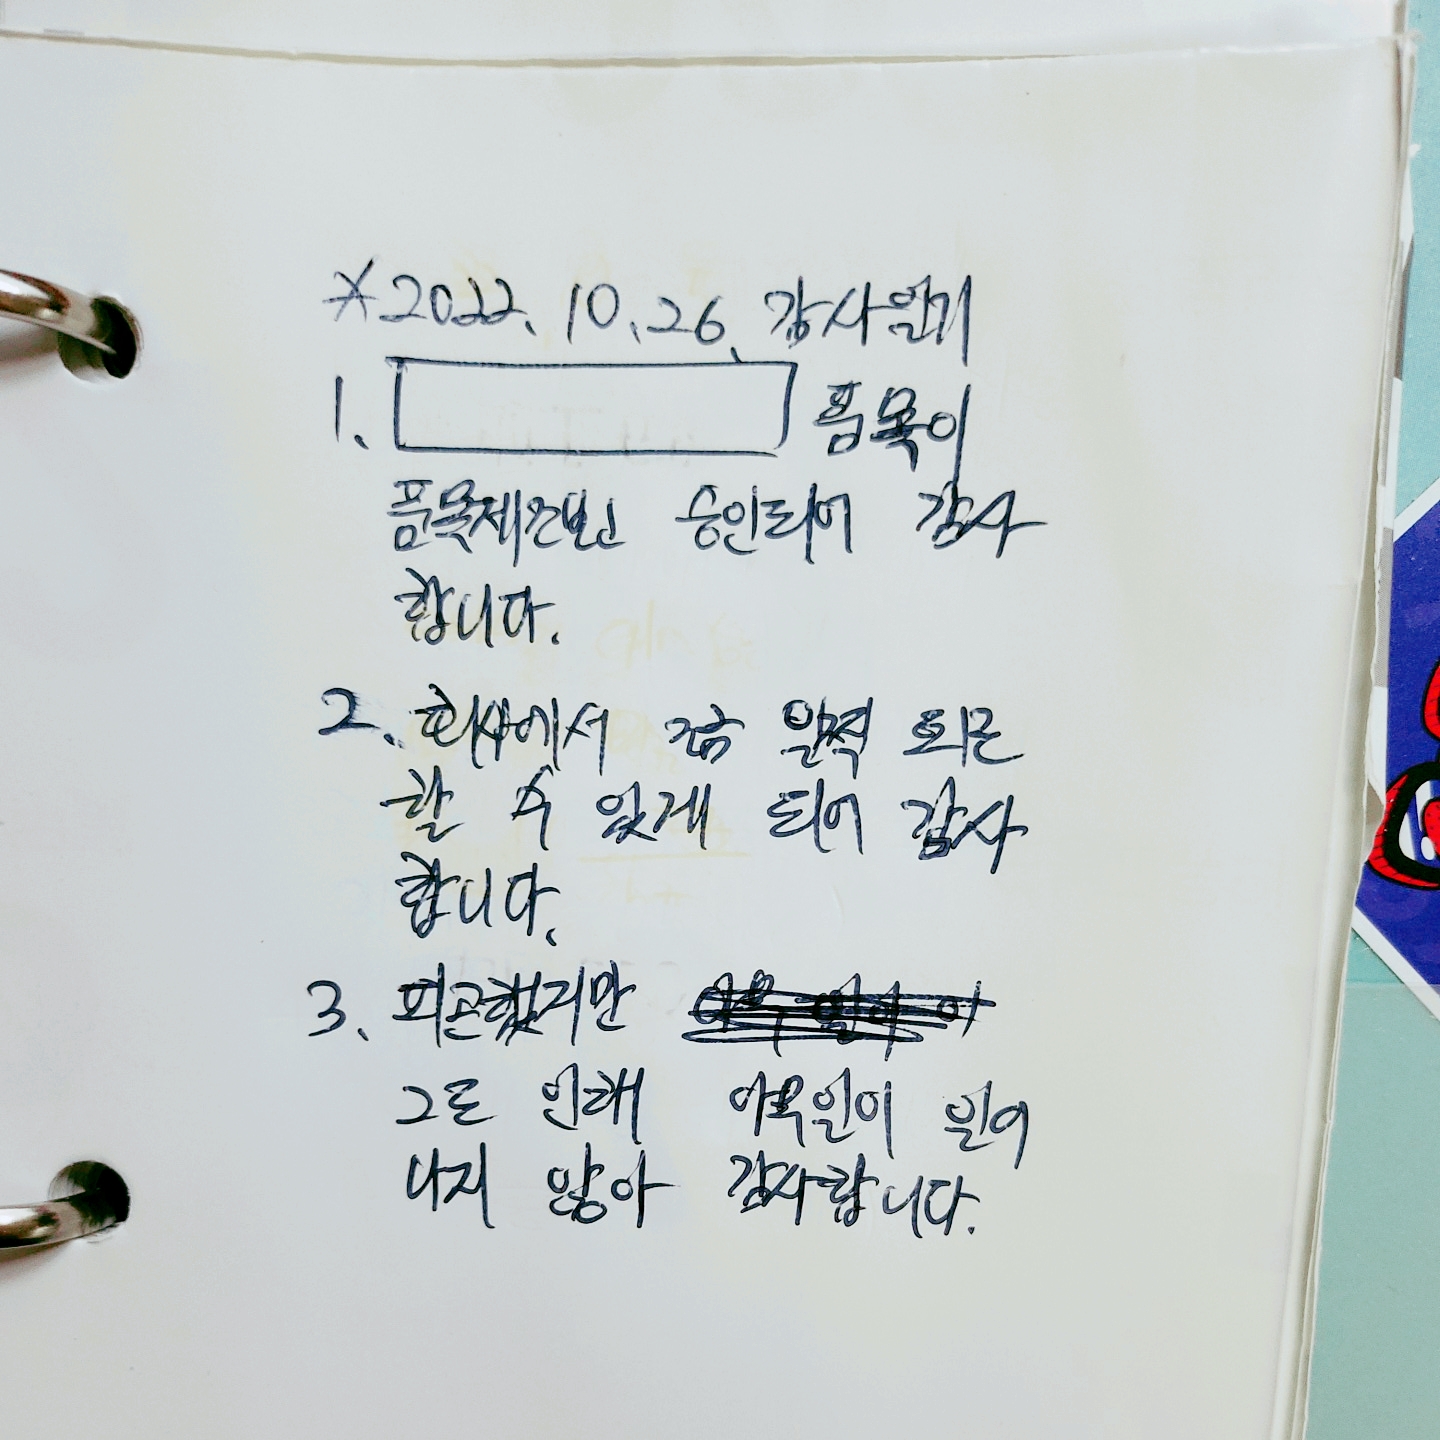 ※2022.10.26. 감사일기
1. 품목이
품목제조보고 승인되어 감사
합니다.
2. 회사에서 조금 일찍 퇴근
할 수 있게 되어 감사
합니다.
3. 피곤했지만
그로 인해 야옥일이 일어
나지 않아 감사합니다.